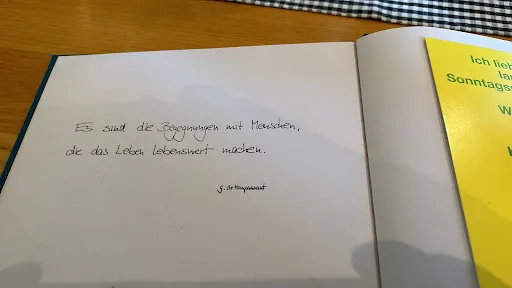 Es sind die Begegnungen mit Menschen,
die das Leben lebenswert machen.
G. de Maupassant
Ich lieb
la
Sonntagss
W